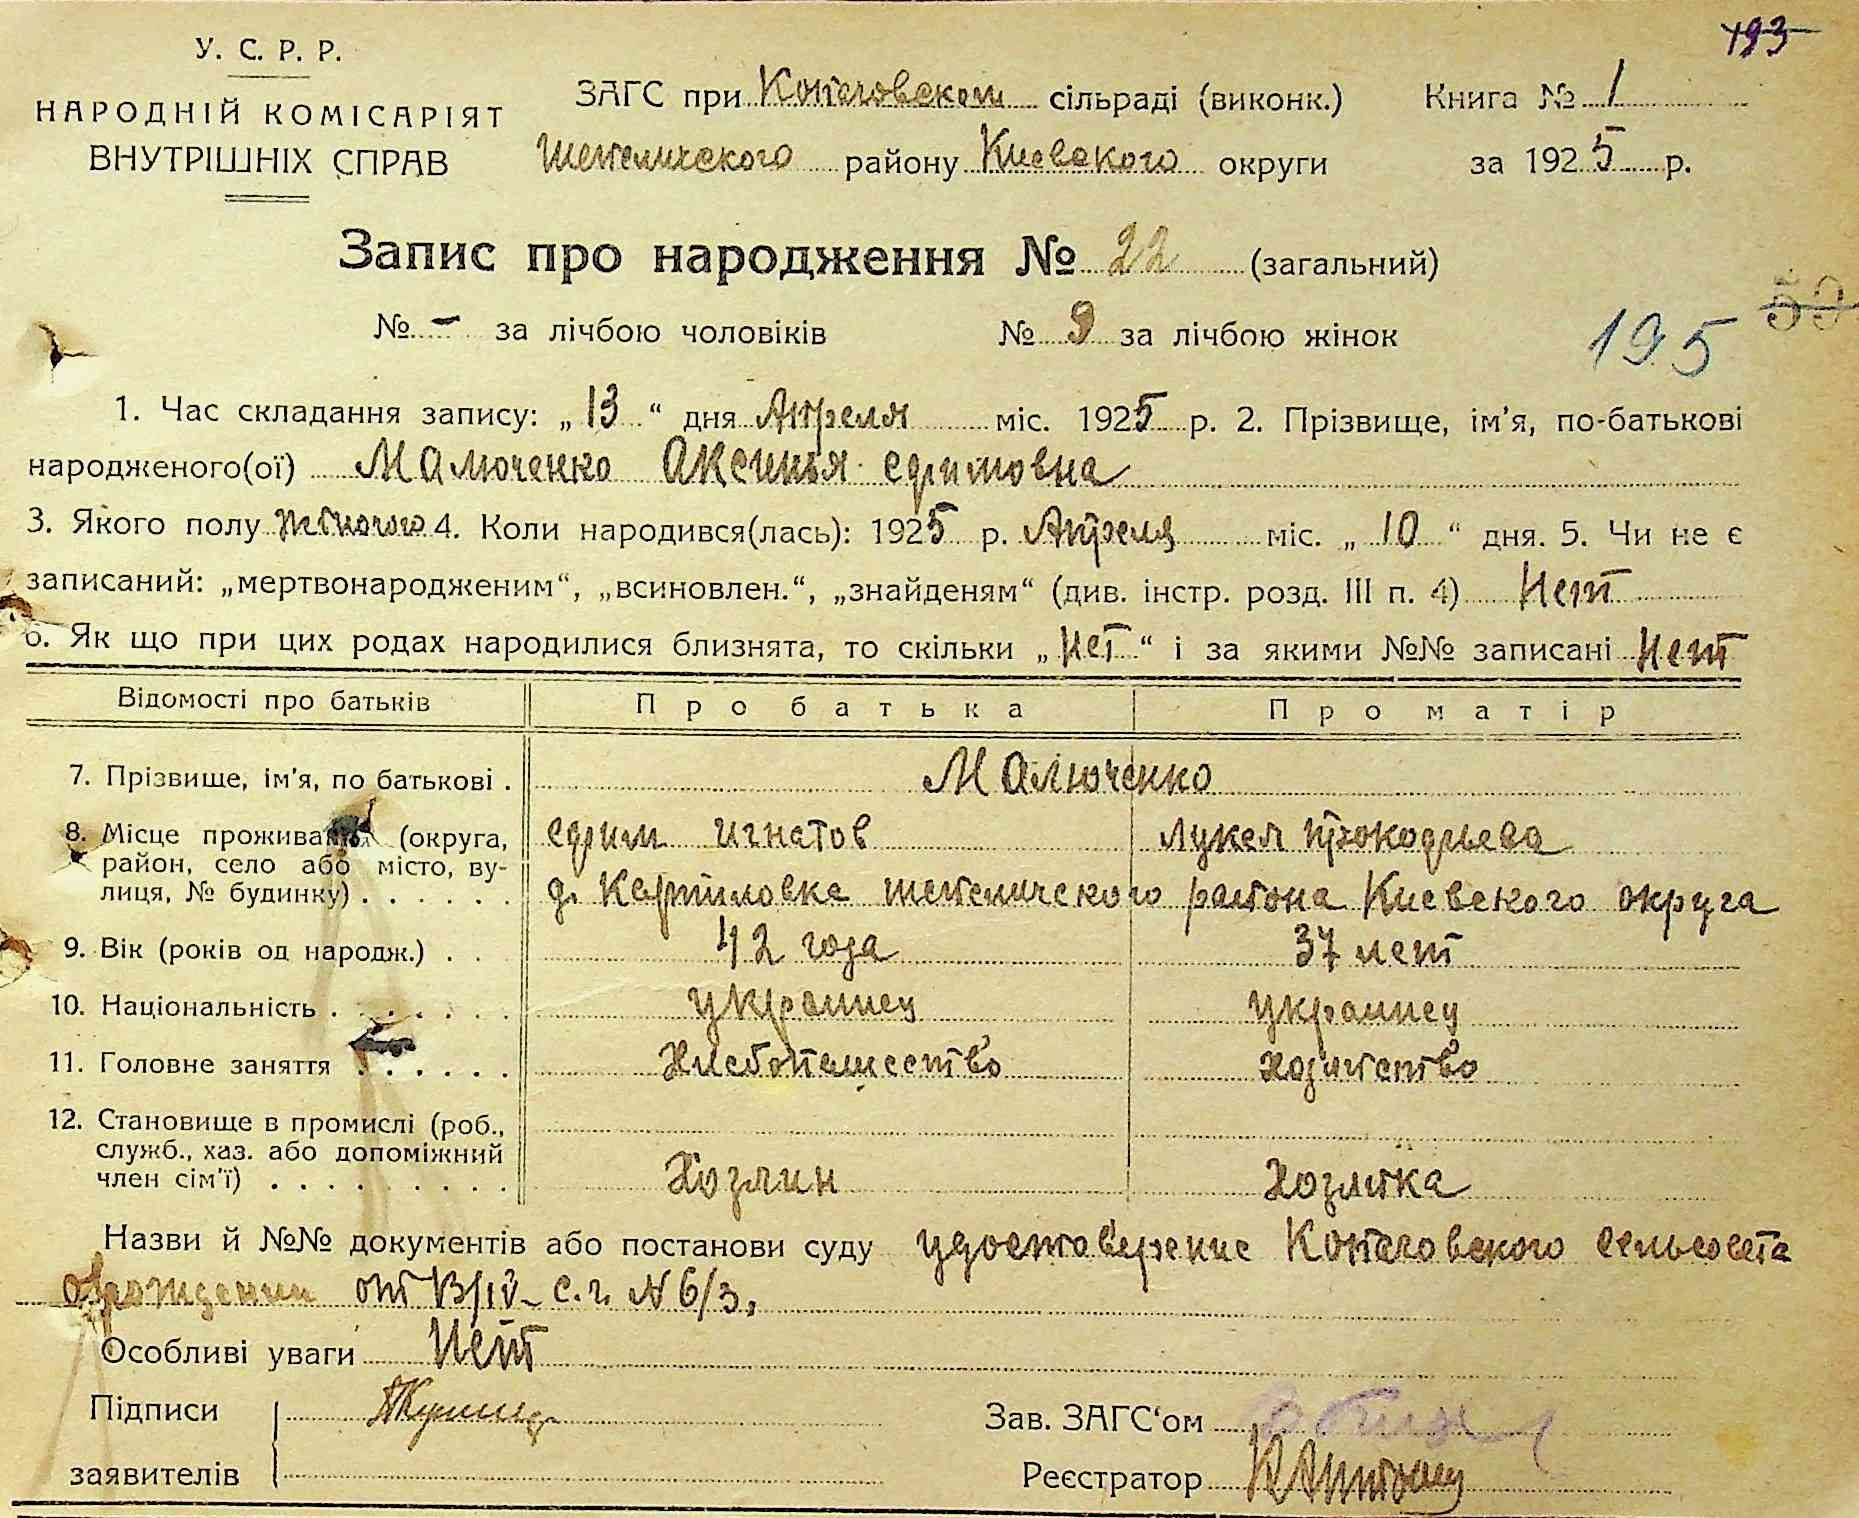 193
У. С. Р. Р.
НАРОДНІЙ КОМІСАРІЯТ
ВНУТРІШНІХ СПРАВ
ЗАГС при Копачовском сільраді (виконк.) Книга № 1
Шепеличского району Киевского округи за 1925 р.
Запис про народження № 22 (загальний)
№ - за лічбою чоловіків № 9 за лічбою жінок
195
1. Час складання запису: „13“ дня Апреля міс. 1925 р. 2. Прізвище, ім'я, по-батькові
народженого(ої) Малюченко Аксинья ефимовна
3. Якого полу женского 4. Коли народився(лась): 1925 р. Апреля міс. „10“ дня. 5. Чи не є
записаний: „мертвонародженим“, „всиновлен.“, „знайденям“ (див. інстр. розд. III п. 4) Нет
6. Як що при цих родах народилися близнята, то скільки „Нет“ і за якими №№ записані Нет
Відомості про батьків Про батька Про матір
7. Прізвище, ім'я, по батькові . Малюченко
8. Місце проживання (округа, район, село або місто, вулиця, № будинку) . . . . . .
ефим игнатов лукея прокофьева
д. Карпиловка шепеличского района Киевского округа
9. Вік (років од народж.) . . 42 года 37 лет
10. Національність . . . . . . . украинец украинец
11. Головне заняття . . . . . . Хлебопашество хозяйство
12. Становище в промислі (роб., служб., хаз. або допоміжний член сім'ї) . . . . . . . . .
Хозяин Хозяйка
Назви й №№ документів або постанови суду удостоверение Копачовского сельсовета
о рождении от 13/IV- с.г. N 6/3.
Особливі уваги Нет
Підписи
заявителів
Зав. ЗАГС'ом
Реєстратор